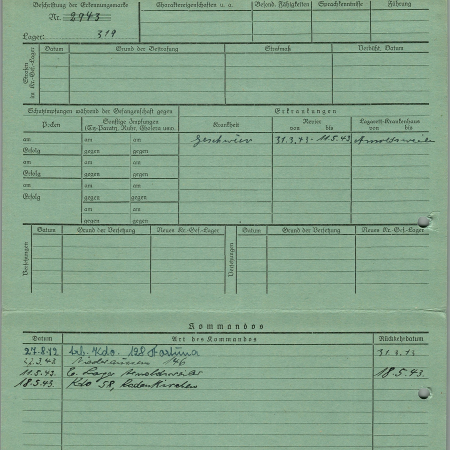 Beschriftung der Erkennungsmarke
Nr. 2943
Lager: 319
Charaktereigenschaften u. a.
Besond. Fähigkeiten
Sprachkenntnisse
Führung
Strafen im Kr.-Gef.-Lager
Datum Grund der Bestrafung Strafmaß Verbüßt, Datum
Schutzimpfungen während der Gefangenschaft gegen Erkrankungen
Pocken Sonstige Impfungen (Ty.-Paratyp., Ruhr, Cholera usw.) Krankheit Revier von bis Lazarett-Krankenhaus von bis
am am Geschwür 31.3.43 - 11.5.43 Arnoldsweiler
Erfolg gegen gegen
am am
Erfolg gegen gegen
am am
Erfolg gegen gegen
am am
Erfolg gegen gegen
am am
gegen gegen
am am
gegen gegen
Versetzungen
Datum Grund der Versetzung Neues Kr.-Gef.-Lager
Versetzungen
Datum Grund der Versetzung Neues Kr.-Gef.-Lager
Kommandos
Datum Art des Kommandos Rückkehrdatum
27.8.42 Arb. Kdo. 128 Fortuna 31.3.43
Niederaussem 146
11.5.43 E. Lager Arnoldsweiler 18.5.43.
18.5.43 Kdo 58, Rodenkirchen